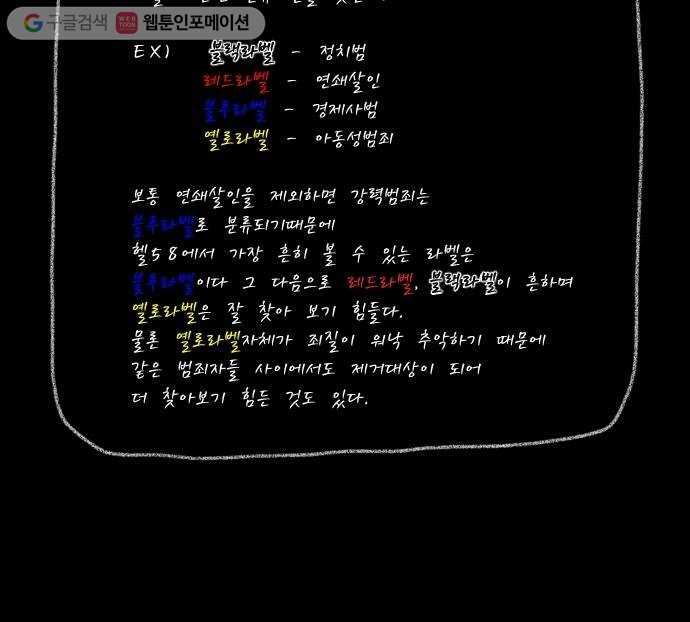 구글검색 WEB TOON 웹툰인포메이션
EX) 블랙라벨 - 정치범
레드라벨 - 연쇄살인
블루라벨 - 경제사범
옐로라벨 - 아동성범죄
보통 연쇄살인을 제외하면 강력범죄는
블루라벨로 분류되기때문에
헬58에서 가장 흔히 볼 수 있는 라벨은
블루라벨이다 그 다음으로 레드라벨, 블랙라벨이 흔하며
옐로라벨은 잘 찾아 보기 힘들다.
물론 옐로라벨자체가 죄질이 워낙 추악하기 때문에
같은 범죄자들 사이에서도 제거대상이 되어
더 찾아보기 힘든 것도 있다.